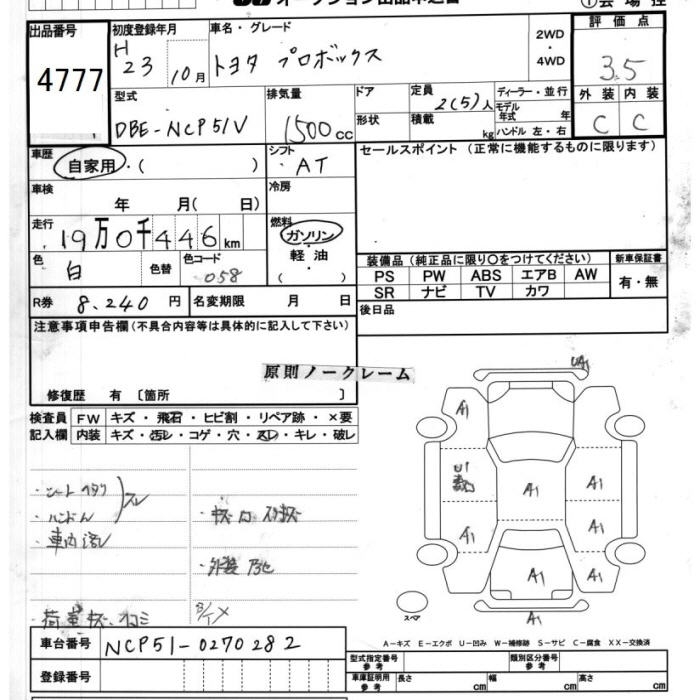 ①会場控
出品番号 初度登録年月 車名・グレード 2WD ・ 4WD 評価点
4777 H 23 10月 トヨタ プロボックス 3.5
型式 排気量 ドア 定員 ディーラー・並行 外装 内装
DBE-NCP51V 1500cc 2(5)人 モデル年式 年 C C
形状 積載 kg ハンドル 左・右
車歴 自家用・( ) シフト AT セールスポイント (正常に機能するものに限ります)
車検 年 月( 日) 冷房
走行 19万0千446km 燃料 ガソリン 軽油 ( )
色 白 色替 色コード 058
装備品 (純正品に限り〇をつけてください) 新車保証書
PS PW ABS エアB AW 有・無
SR ナビ TV カワ
R券 8,240円 名変期限 月 日 後日品
注意事項申告欄(不具合内容等は具体的に記入して下さい)
原則ノークレーム
修復歴 有 [箇所 ]
検査員 FW キズ・飛石・ヒビ割・リペア跡・×要
記入欄 内装 キズ・汚レ・コゲ・穴・スレ・キレ・破レ
UA1
A1
U1
A1 A1
A1 A1
A1 A1
A1
・シートヘタリ
・ハンドル スレ
・車内汚レ
スペア
車台番号 NCP51-0270282
登録番号
A－キズ E－エクボ U－凹み W－補修跡 S－サビ C－腐食 XX－交換済
型式指定番号 参考 類別区分番号 参考
車庫証明用 参考 長さ cm 幅 cm 高さ cm